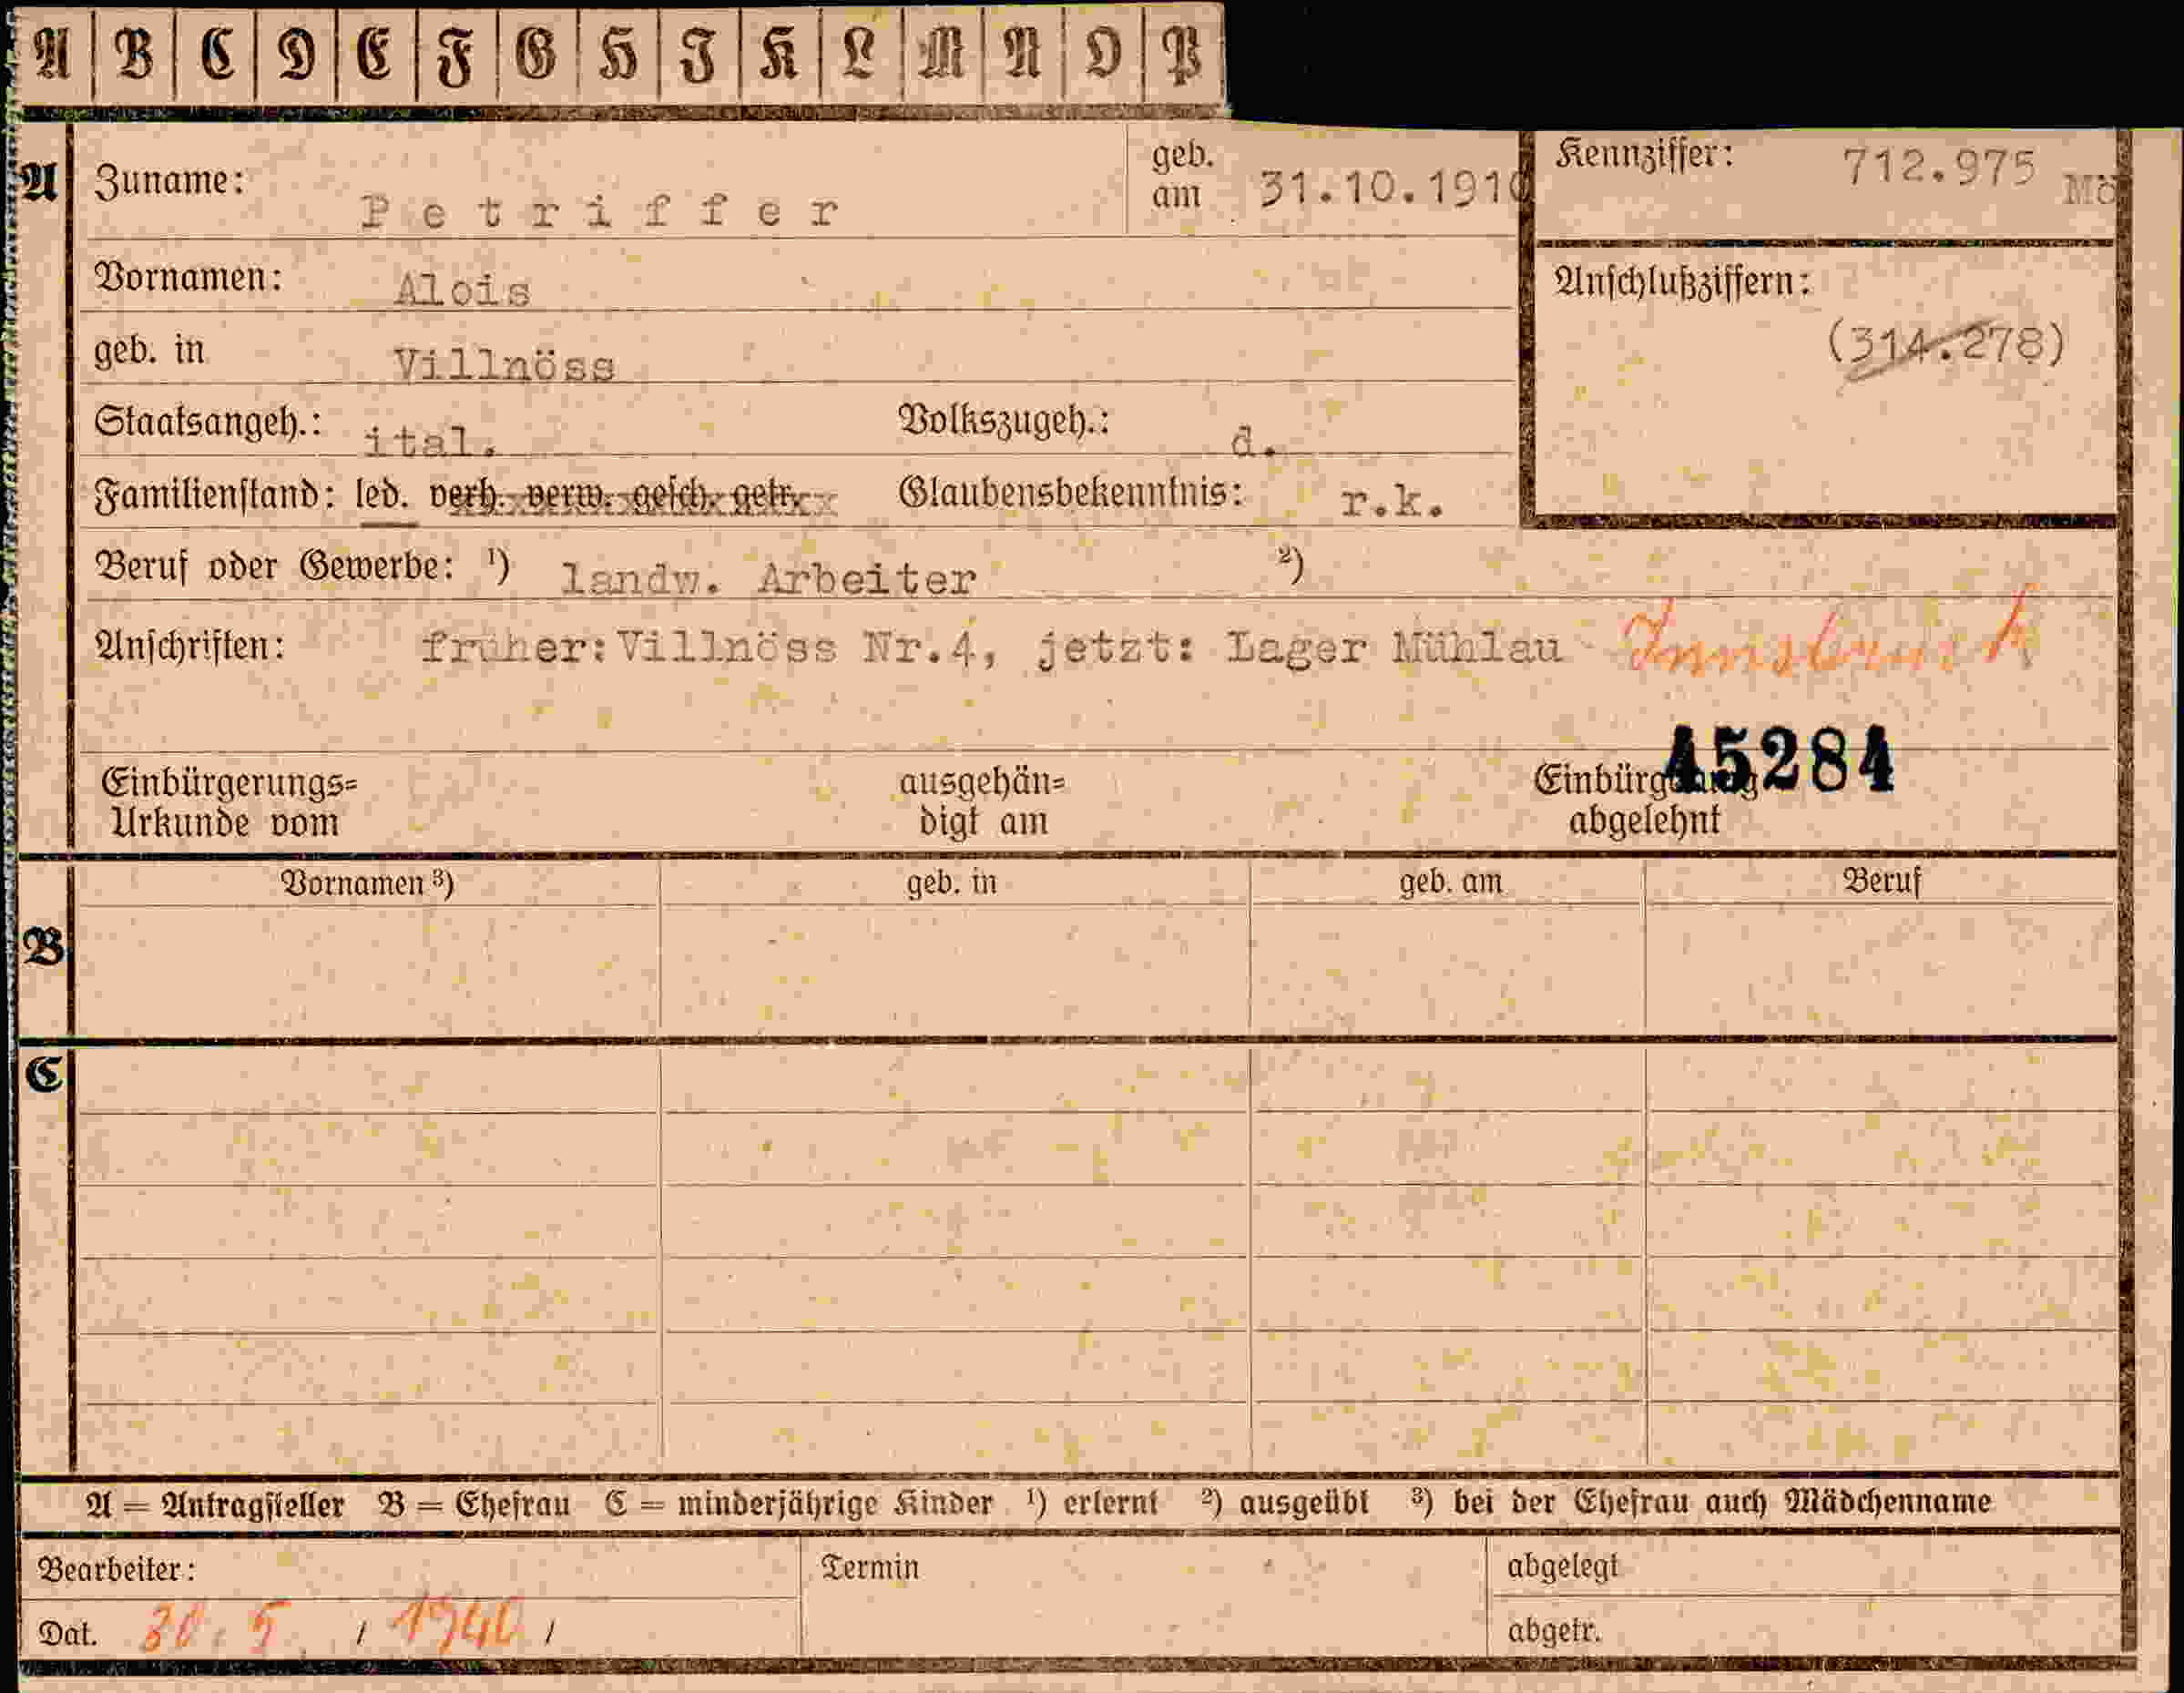 A B C D E F G H I K L M N O P
A Zuname: Petriffer geb. am 31.10.1910 Kennziffer: 712.975 Mö
Vornamen: Alois Anschlußziffern:
(314.278)
geb. in Villnöss
Staatsangeh.: ital. Volkszugeh.: d.
Familienstand: led. verh. verw. gesch. getr. Glaubensbekenntnis: r.k.
Beruf oder Gewerbe: ¹) landw. Arbeiter ²)
Anschriften: früher: Villnöss Nr.4, jetzt: Lager Mühlau Innsbruck
45284
Einbürgerungs= ausgehän= Einbürgerung
Urkunde vom digt am abgelehnt
Vornamen ³) geb. in geb. am Beruf
B
C
A = Antragsteller B = Ehefrau C = minderjährige Kinder ¹) erlernt ²) ausgeübt ³) bei der Ehefrau auch Mädchenname
Bearbeiter: Termin abgelegt
Dat. 30. 5. / 1940 / abgetr.